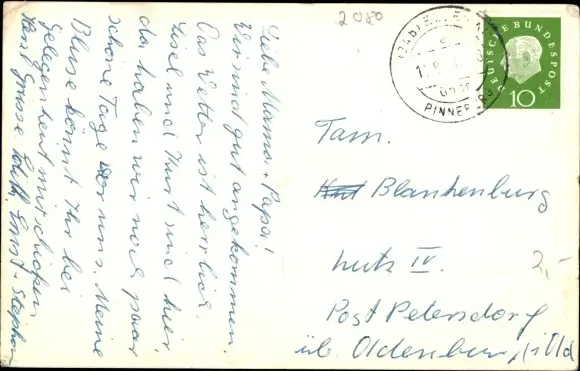 Liebe Mama + Papa!
Wir sind gut angekommen.
Das Wetter ist herrlich.
Liesel und Kurt sind hier,
da haben wir noch paar
schöne Tage vor uns. Meine
Bluse könnt Ihr bei
Gelegenheit mitschicken.
Herzl. Grüsse Ernst + Stephan
2080
(24b)
PINNEBERG
DEUTSCHE BUNDESPOST
10
Fam.
Kurt Blankenburg
Lutz IV.
2,-
Post Petersdorf
üb. Oldenburg i/Old